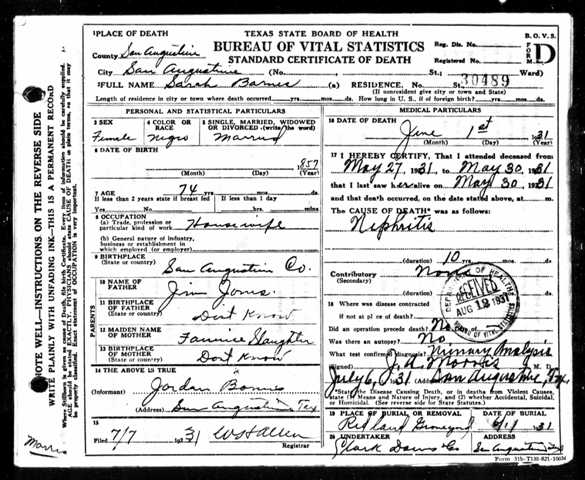 1 PLACE OF DEATH
TEXAS STATE BOARD OF HEALTH
B. O. V. S.
BUREAU OF VITAL STATISTICS
STANDARD CERTIFICATE OF DEATH
FORM D
County San Augustine
City San Augustine (No.
St.; Ward)
Reg. Dis. No.
Registered No.
30489
2 FULL NAME Sarah Barnes (a) RESIDENCE.
(If nonresident give city or state)
Length of residence in city or town where death occurred yrs. mos. days. How long in U. S., if of foreign birth? yrs. mos. days.
PERSONAL AND STATISTICAL PARTICULARS
3 SEX
Female
4 COLOR OR RACE
Negro
5 SINGLE, MARRIED, WIDOWED OR DIVORCED. (write the word)
Married
6 DATE OF BIRTH
857
(Month) (Day) (Year)
7 AGE
74 yrs. mos. days
If less than 2 years state if breast fed
If less than 1 day
Yes No hrs. min.
8 OCCUPATION
(a) Trade, profession or particular kind of work
Housewife
(b) General nature of industry, business or establishment in which employed or (employer)
9 BIRTHPLACE
(State or country)
San Augustine Co.
PARENTS
10 NAME OF FATHER
Jim Jones
11 BIRTHPLACE OF FATHER
(State or country)
Dont Know
12 MAIDEN NAME OF MOTHER
Slaughter
13 BIRTHPLACE OF MOTHER
(State or country)
Dont Know
14 THE ABOVE IS TRUE
(Informant) Jordan
(Address) San Augustine Tex
15
Filed 7/7 1931 W S Allen
Registrar
MEDICAL PARTICULARS
16 DATE OF DEATH
June 1st 31
(Month) (Day) (Year)
17 I HEREBY CERTIFY, That I attended deceased from
May 27, 1931, to May 30, 1931
that I last saw her alive on May 30, 1931
and that death occurred, on the date stated above, at m.
The CAUSE OF DEATH was as follows:
Nephritis
(duration) 10 yrs. mos. days
Contributory None
(Secondary)
(duration) yrs. mos. days
18 Where was disease contracted
if not at place of death?
Did an operation precede death? No Date of
Was there an autopsy? No
What test confirmed diagnosis? Analysis
(Signed)
July 6, 1931 (Address) San Augustine, Tex.
*State Disease Causing Death, or in Deaths from Violent Causes, state (1) Means and Nature of Injury, and (2) whether Accidental, Suicidal, or Homicidal. (See reverse side for State Statutes.)
19 PLACE OF BURIAL OR REMOVAL
DATE
31
20 UNDERTAKER
Clark
ADDRESS
San Augustine
DEPARTMENT OF HEALTH
RECEIVED
AUG 12 1931
NOTE WELL—INSTRUCTIONS ON THE REVERSE SIDE
WRITE PLAINLY WITH UNFADING INK—THIS IS A PERMANENT RECORD